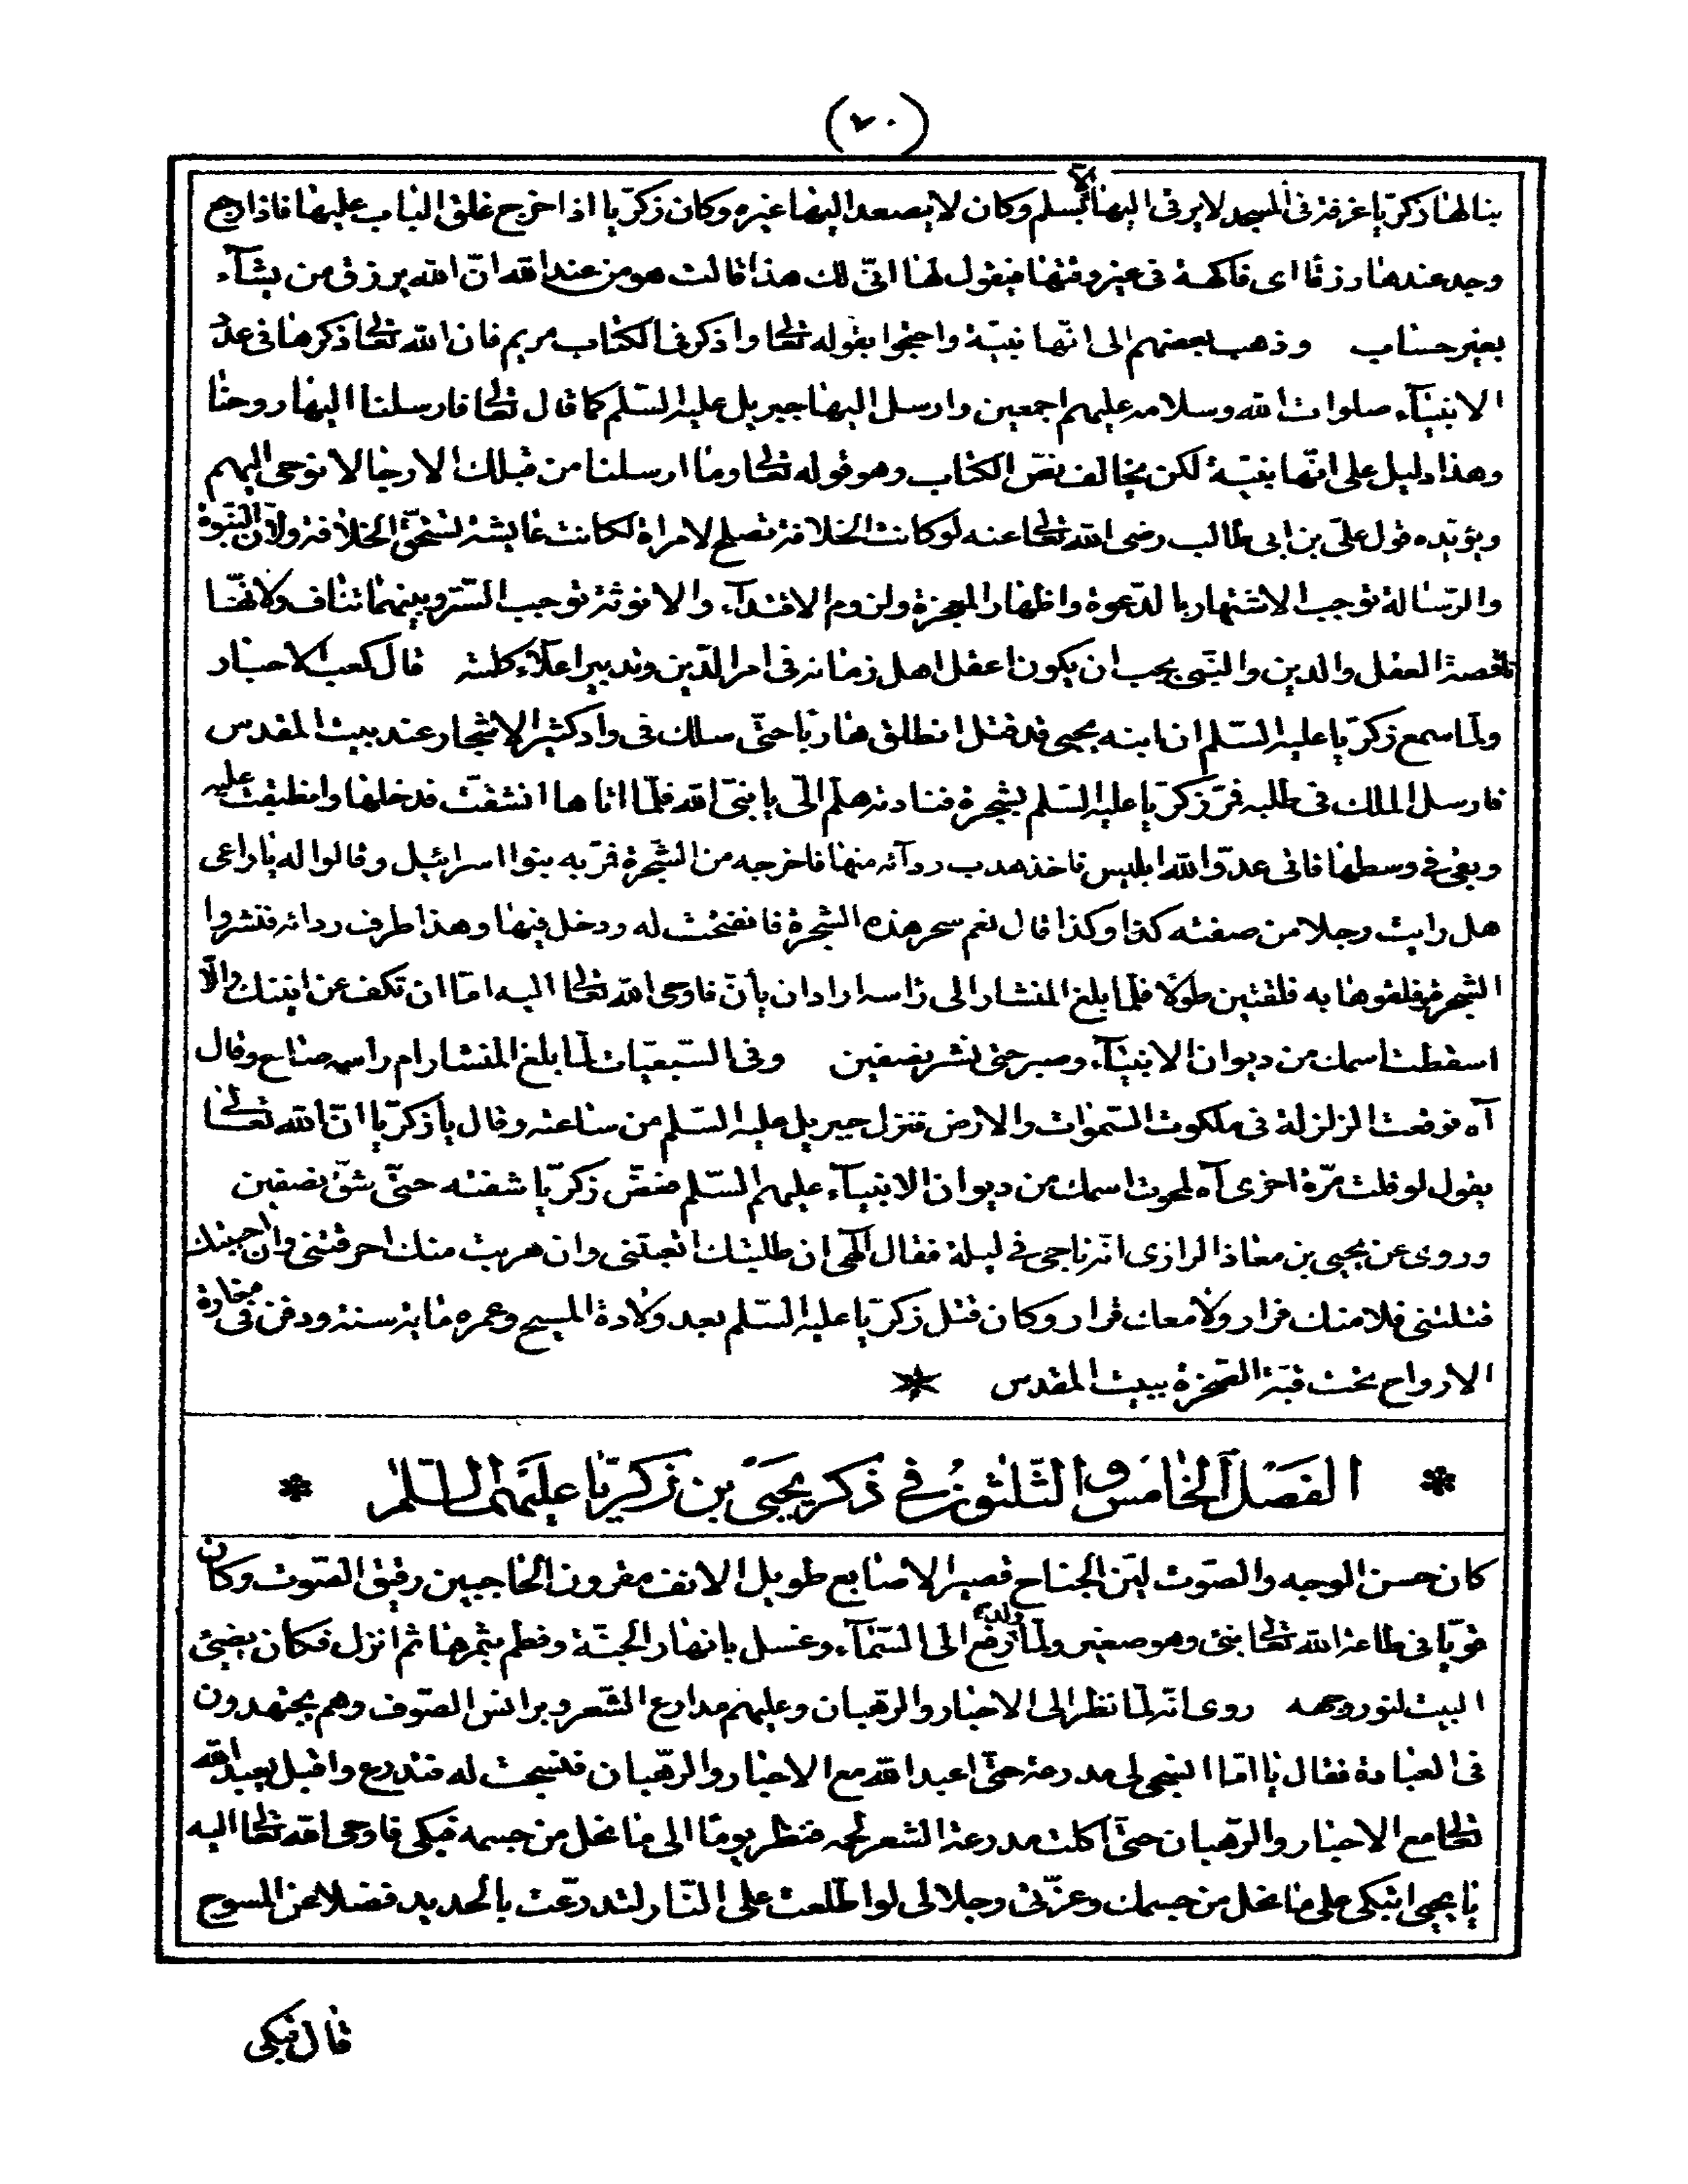 (٧٠)
بنا لها زكريا غرفة فى المسجد لا يرقى اليها الا بسلم وكان لا يصعد اليها غيره وكان زكريا اذا خرج غلق الباب عليها فاذا رجع
وجد عندها رزقا اى فاكهة فى غير وقتها فيقول لها انى لك هذا قالت هو من عند الله ان الله يرزق من يشآء
بغير حساب وذهب بعضهم الى انها نبية واحتجوا بقوله تعالى واذكر فى الكتاب مريم فان الله تعالى ذكرها فى عدد
الانبيآء صلوات الله وسلامه عليهم اجمعين وارسل اليها جبريل عليه السلم كما قال تعالى فارسلنا اليها روحنا
وهذا دليل على انها نبية لكن يخالف نص الكتاب وهو قوله تعالى وما ارسلنا من قبلك الا رجالا نوحى اليهم
ويؤيده قول على بن ابى طالب رضى الله تعالى عنه لو كانت الخلافة تصلح لامراة لكانت عايشة تستحق الخلافة ولان النبوة
والرسالة توجب الاشتهار بالدعوة واظهار المعجزة ولزوم الاقتدآء والانوثة توجب الستر وبينهما تناف ولانها
ناقصة العقل والدين والنبى يجب ان يكون اعقل اهل زمانه فى امر الدين وتدبير اعلآء كلمته قال كعب الاحبار
ولما سمع زكريا عليه السلم ان ابنه يحيى قد قتل انطلق هاربا حتى سلك فى واد كثير الاشجار عند بيت المقدس
فارسل الملك فى طلبه فمر زكريا عليه السلم بشجرة فنادته هلم الى يا نبى الله فلما اتاها انشقت فدخلها وانطبقت عليه
وبقى فى وسطها فاتى عدو الله ابليس فاخذ هدب ردآئه منها فاخرجه من الشجرة فمر به بنوا اسرائيل وقالوا له يا راعى
هل رايت رجلا من صفته كذا وكذا قال نعم سحر هذه الشجرة فانفتحت له ودخل فيها وهذا طرف ردائه فنشروا
الشجرة وفلقوها به فلقتين طولا فلما بلغ المنشار الى راسه اراد ان يأن فاوحى الله تعالى اليه اما ان تكف عن انينك والا
اسقطت اسمك من ديوان الانبيآء وصبر حتى نشر نصفين وفى السبعيات لما بلغ المنشار ام راسه صاح وقال
آه فوقعت الزلزلة فى ملكوت السموات والارض فنزل جبريل عليه السلم من ساعته وقال يا زكريا ان الله تعالى
يقول لو قلت مرة اخرى آه لمحوت اسمك من ديوان الانبيآء عليهم السلم فعض زكريا شفته حتى شق نصفين
وروى عن يحيى بن معاذ الرازى انه ناجى فى ليلة فقال الهى ان طلبتك اتعبتنى وان هربت منك احرقتنى وان احببتك
قتلتنى فلا منك فرار ولا معك قرار وكان قتل زكريا عليه السلم بعد ولادة المسيح وعمره مائة سنة ودفن فى مغارة
الارواح تحت قبة الصخرة ببيت المقدس *
* الفصل الخامس والثلثون فى ذكر يحيى بن زكريا عليهما السلم *
كان حسن الوجه والصوت لين الجناح قصير الاصابع طويل الانف مقرون الحاجبين رقيق الصوت وكان
قويا فى طاعة الله تعالى نبئ وهو صغير ولما ولد رفع الى السمآء وغسل بانهار الجنة وفطم بثمرها ثم انزل فكان يضئ
البيت لنور وجهه روى انه لما نظر الى الاحبار والرهبان وعليهم مدارع الشعر وبرانس الصوف وهم يجتهدون
فى العبادة فقال يا اماا انسجى لى مدرعة حتى اعبد الله مع الاحبار والرهبان فنسجت له فتدرع واقبل يعبد الله
تعالى مع الاحبار والرهبان حتى اكلت مدرعة الشعر لحمه فنظر يوما الى ما نحل من جسمه فبكى فاوحى الله تعالى اليه
يا يحيى اتبكى على ما نحل من جسمك وعزتى وجلالى لو اطلعت على النار لتدرعت بالحديد فضلا عن المسوح
قال فبكى